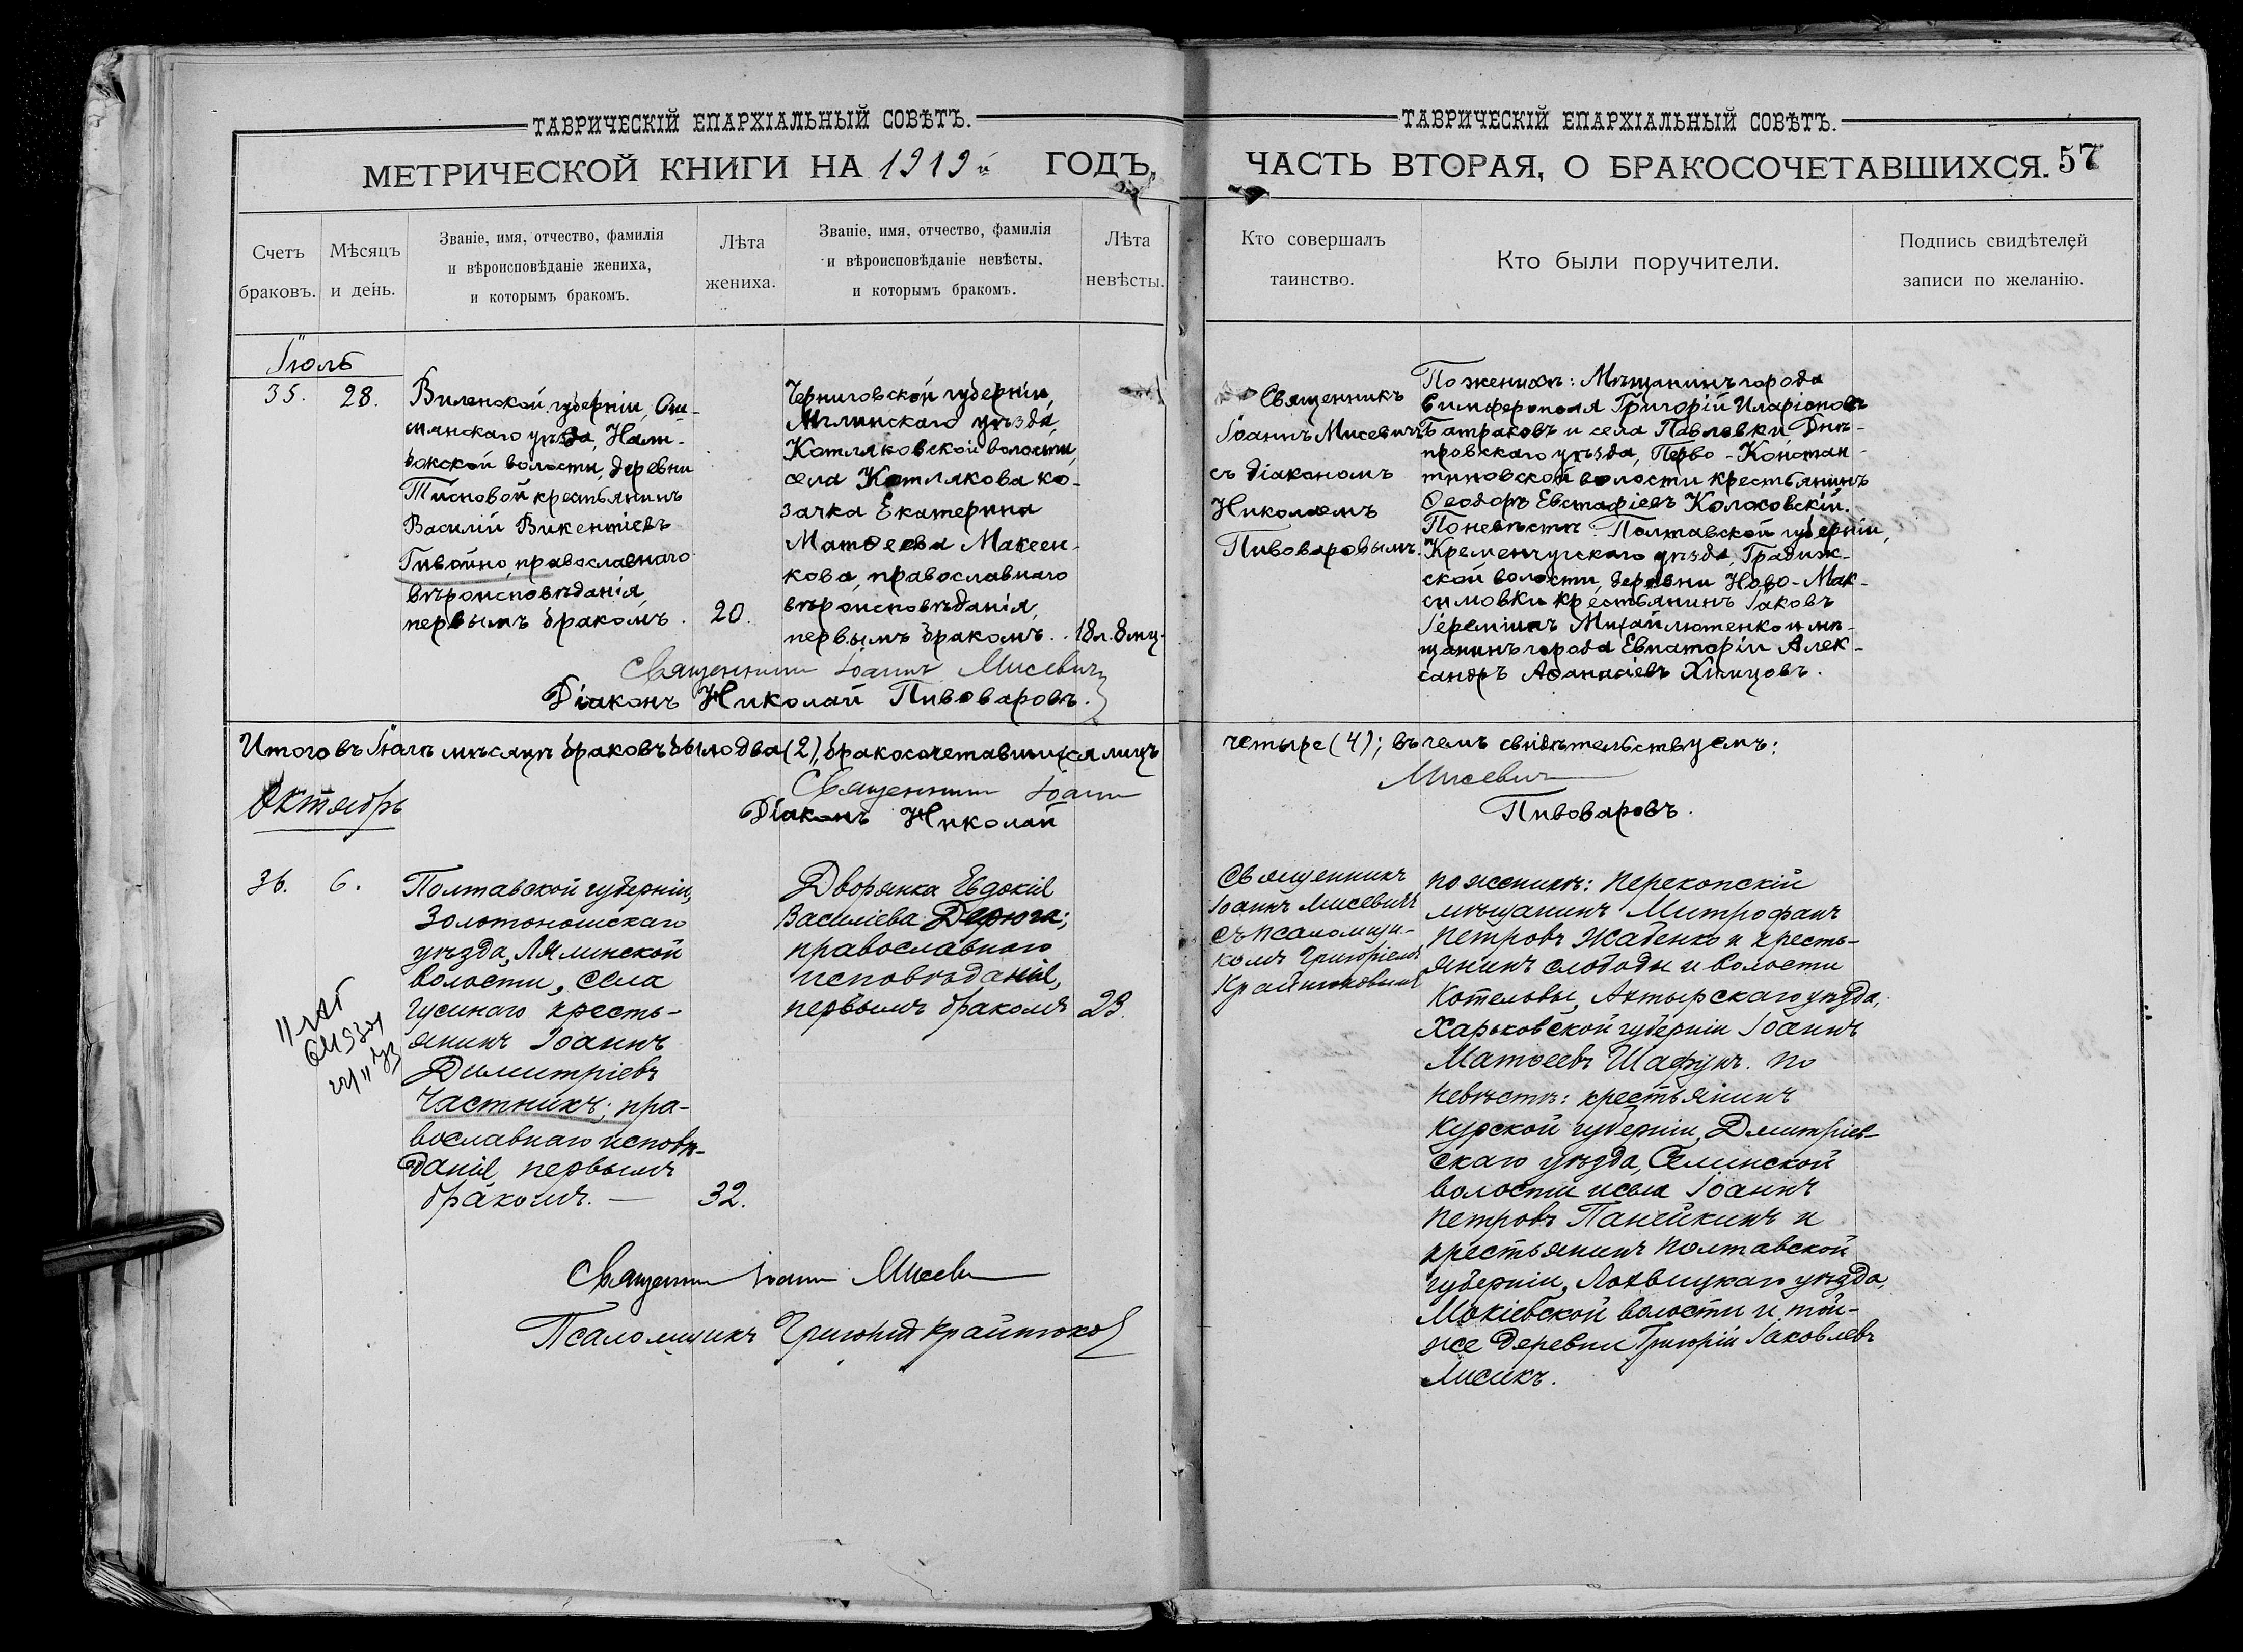 ТАВРИЧЕСКІЙ ЕПАРХІАЛЬНЫЙ СОВѢТЪ.
МЕТРИЧЕСКОЙ КНИГИ НА 1919й ГОДЪ,
Счетъ браковъ.
Мѣсяцъ и день.
Званіе, имя, отчество, фамилія
и вѣроисповѣданіе жениха,
и которымъ бракомъ.
Лѣта жениха.
Званіе, имя, отчество, фамилія
и вѣроисповѣданіе невѣсты,
и которымъ бракомъ.
Лѣта невѣсты.
Іюль
35.
28.
Виленской губерніи, Ош-
мянскаго уѣзда, Нали-
бокской волости, деревни
Тисновой крестьянинъ
Василій Викентіевъ
Гивойно, православнаго
вѣроисповѣданія,
первымъ бракомъ.
20.
Черниговской губерніи,
Мглинскаго уѣзда,
Котляковской волости,
села Котлякова ко-
зачка Екатерина
Матѳеева Макеен-
кова, православнаго
вѣроисповѣданія,
первымъ бракомъ.
18л. 8мц.
Священникъ Іоаннъ Мисевичъ
Діаконъ Николай Пивоваровъ.
Итого въ Іюлѣ мѣсяцѣ браковъ было два (2), бракосочетавшихся лицъ
Священникъ Іоаннъ
Діаконъ Николай
Октябрь
36.
6.
Полтавской губерніи,
Золотоношскаго
уѣзда, Лялинской
волости, села
Гусинаго кресть-
янинъ Іоаннъ
Димитріевъ
Частникъ; пра-
вославнаго исповѣ-
данія, первымъ
бракомъ. —
32.
Дворянка Евдокія
Василіева Дерюга;
православнаго
исповѣданія,
первымъ бракомъ
23.
Священникъ Іоаннъ Мисевичъ
Псаломщикъ Григорій Крайтюковъ
ТАВРИЧЕСКІЙ ЕПАРХІАЛЬНЫЙ СОВѢТЪ.
ЧАСТЬ ВТОРАЯ, О БРАКОСОЧЕТАВШИХСЯ.
57
Кто совершалъ таинство.
Кто были поручители.
Подпись свидѣтелей
записи по желанію.
Священникъ
Іоаннъ Мисевичъ
съ діакономъ
Николаемъ
Пивоваровымъ.
По женихѣ: Мѣщанинъ города
Симферополя Григорій Иларіоновъ
Батраковъ и села Павловки Днѣ-
провскаго уѣзда, Перво-Констан-
тиновской волости крестьянинъ
Ѳеодоръ Евстафіевъ Колоковскій.
По невѣстѣ: Полтавской губерніи,
Кременчугскаго уѣзда, Градиж-
ской волости, деревни Ново-Мак-
симовки крестьянинъ Іаковъ
Іереміинъ Михайлютенко и мѣ-
щанинъ города Евпаторіи Алек-
сандръ Аѳанасіевъ Химцовъ.
четыре (4); въ чемъ свидѣтельствуемъ:
Мисевичъ
Пивоваровъ.
Священникъ
Іоаннъ Мисевичъ
съ псаломщи-
комъ Григоріемъ
Крайтюковымъ
По женихѣ: Перекопскій
мѣщанинъ Митрофанъ
Петровъ Жабенко и кресть-
янинъ слободы и волости
Котельвы, Ахтырскаго уѣзда,
Харьковской губерніи Іоаннъ
Матѳеевъ Шафунъ. По
невѣстѣ: крестьянинъ
Курской губерніи, Дмитріев-
скаго уѣзда, Селинской
волости и села Іоаннъ
Петровъ Панѣйкинъ и
крестьянинъ Полтавской
губерніи, Лохвицкаго уѣзда,
Мокіевской волости и той-
же деревни Григорій Іаковлевъ
Лисикъ.